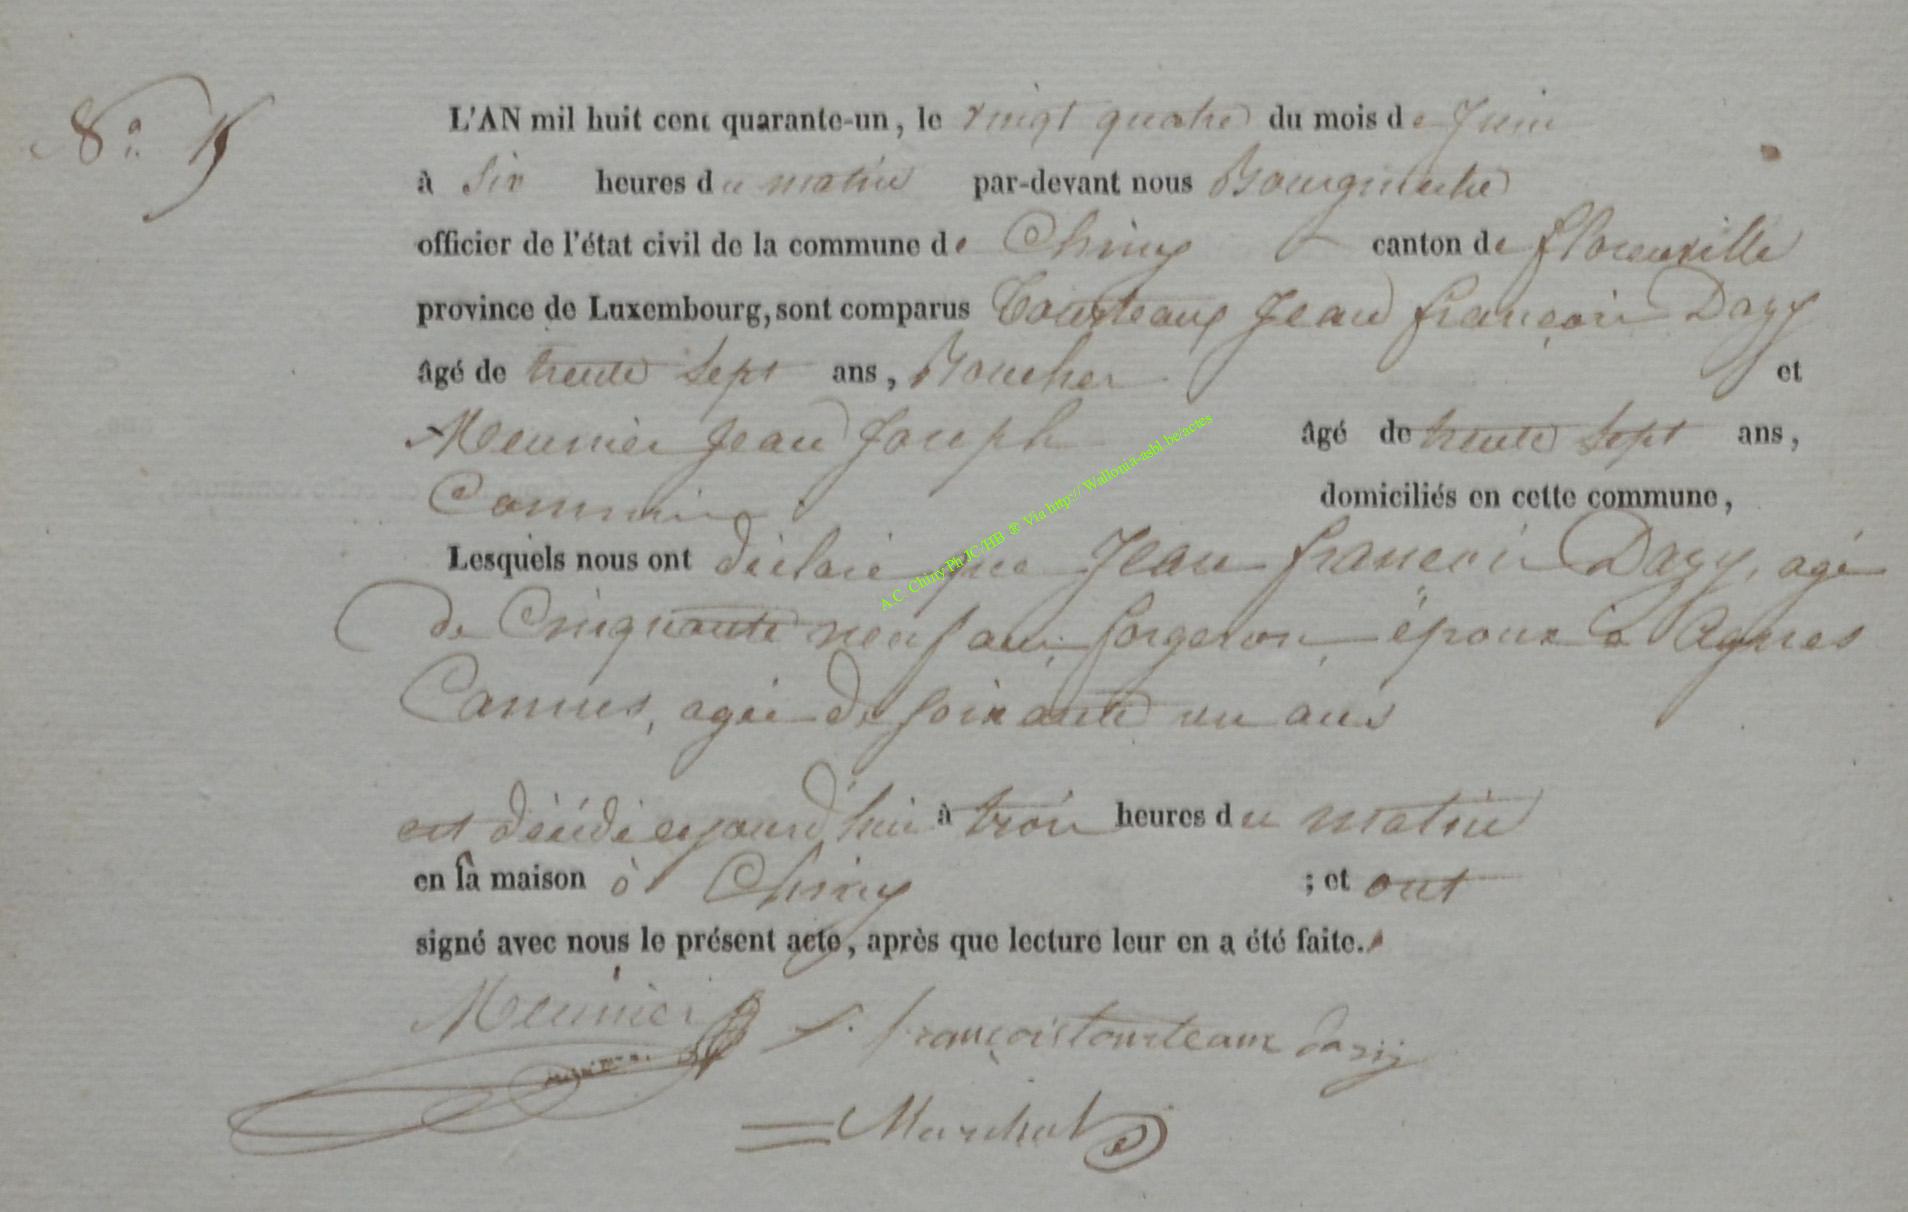 N° 15
L'AN mil huit cent quarante-un, le vingt quatre du mois de Juin
à Six heures du matin par-devant nous Bourgmestre
officier de l'état civil de la commune de Chiny canton de florenville
province de Luxembourg, sont comparus Tourteaux Jean françois Dazy
âgé de trente sept ans, Boucher et
Meunier Jean Joseph âgé de trente sept ans,
Commis domiciliés en cette commune,
Lesquels nous ont déclaré que Jean françois Dazy, agé
de Cinquante neuf ans, forgeron, époux à Agnes
Camus, agée de soixante un ans
est décédé aujourd'hui à trois heures du matin
en sa maison à Chiny ; et ont
signé avec nous le présent acte, après que lecture leur en a été faite.
Meunier J. françois tourteaux dazij
Marchal
A.C. Chiny Ph JC/HB ® Via http:// Wallonia-asbl.be/actes